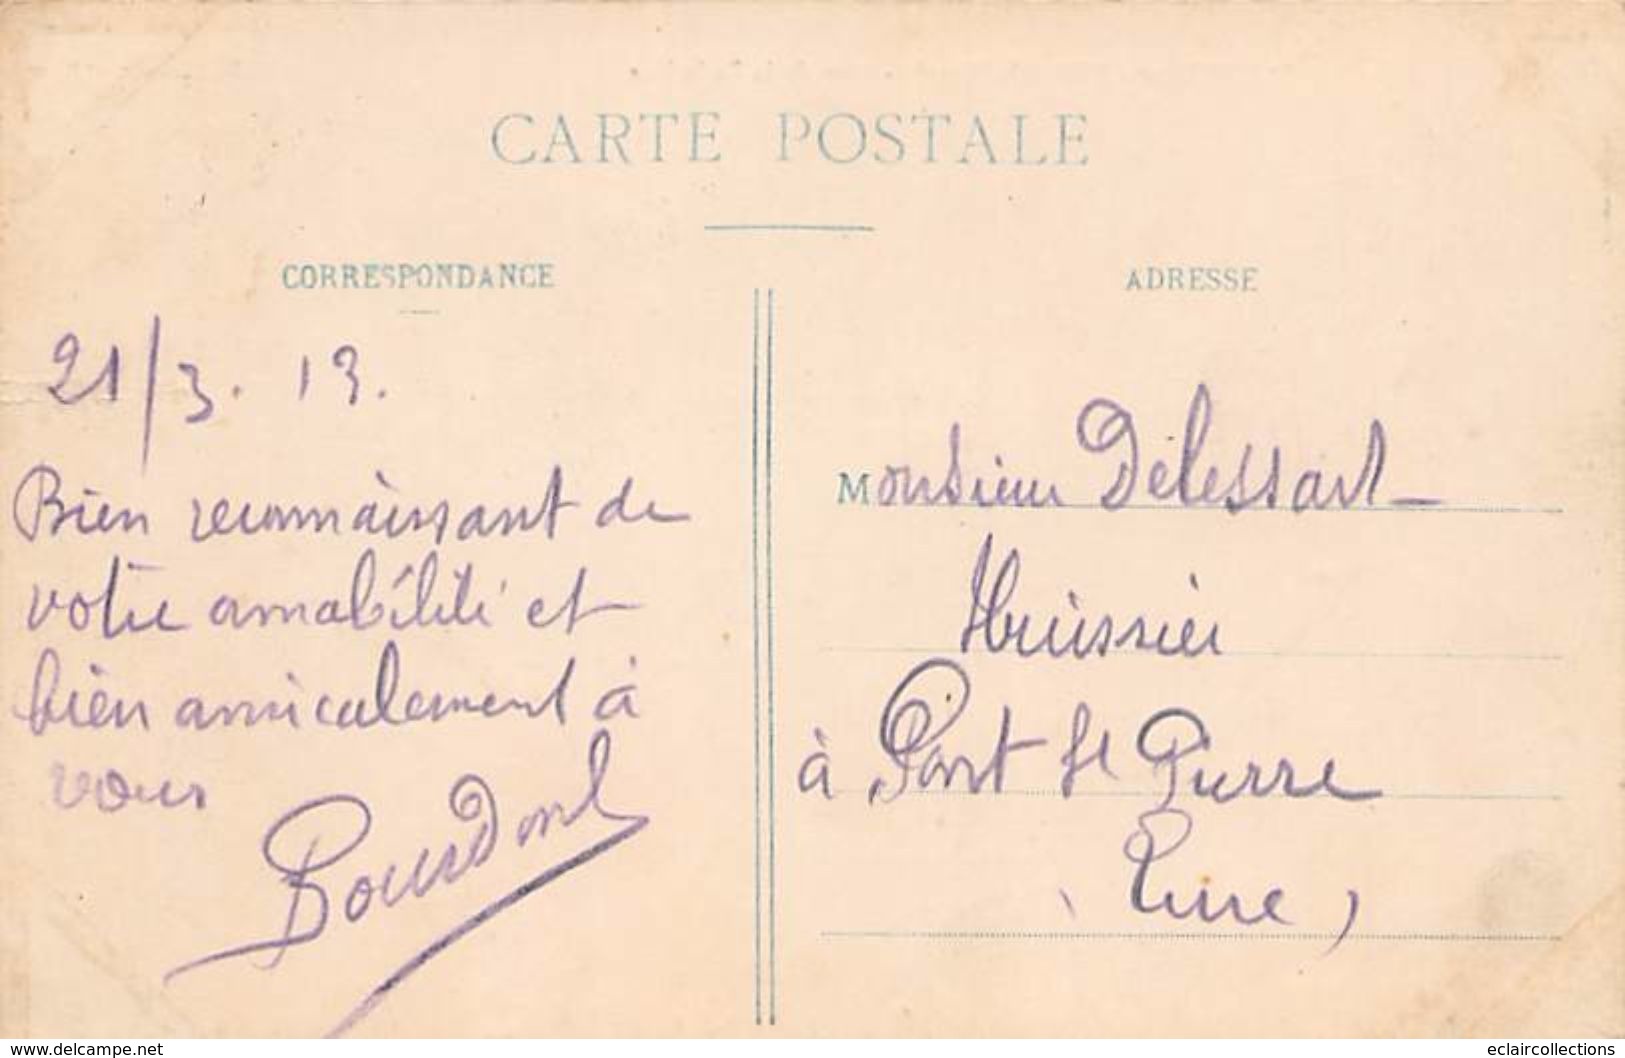 CARTE POSTALE
CORRESPONDANCE
21/3. 13.
Bien reconnaissant de
votre amabilité et
bien amicalement à
vous
Bourdont
ADRESSE
Monsieur Delessart
Huissier
à Pont St Pierre
(Eure)
www.delcampe.net
eclaircollections